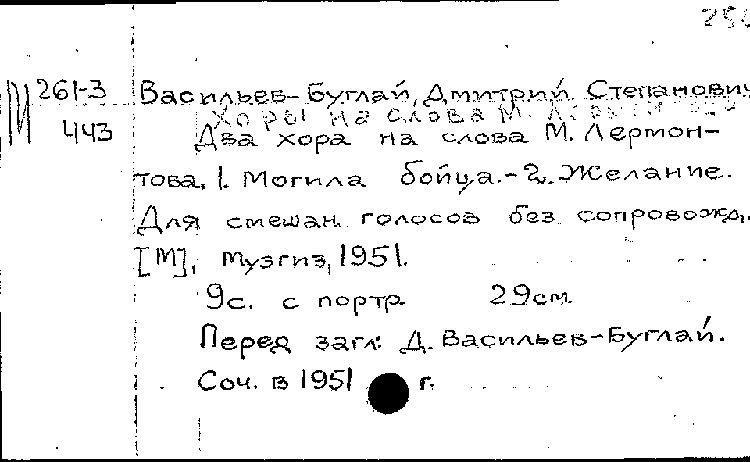 М 261-3 Васильев-Буглай, Дмитрий Степанович
443 Хоры на слова М.
Два хора на слова М. Лермон-
това. 1. Могила бойца.-2. Желание.
Для смешан. голосов без сопровожд.
[М], Музгиз, 1951.
9с. с портр 29см
Перед загл: Д. Васильев-Буглай.
Соч. в 1951 г.